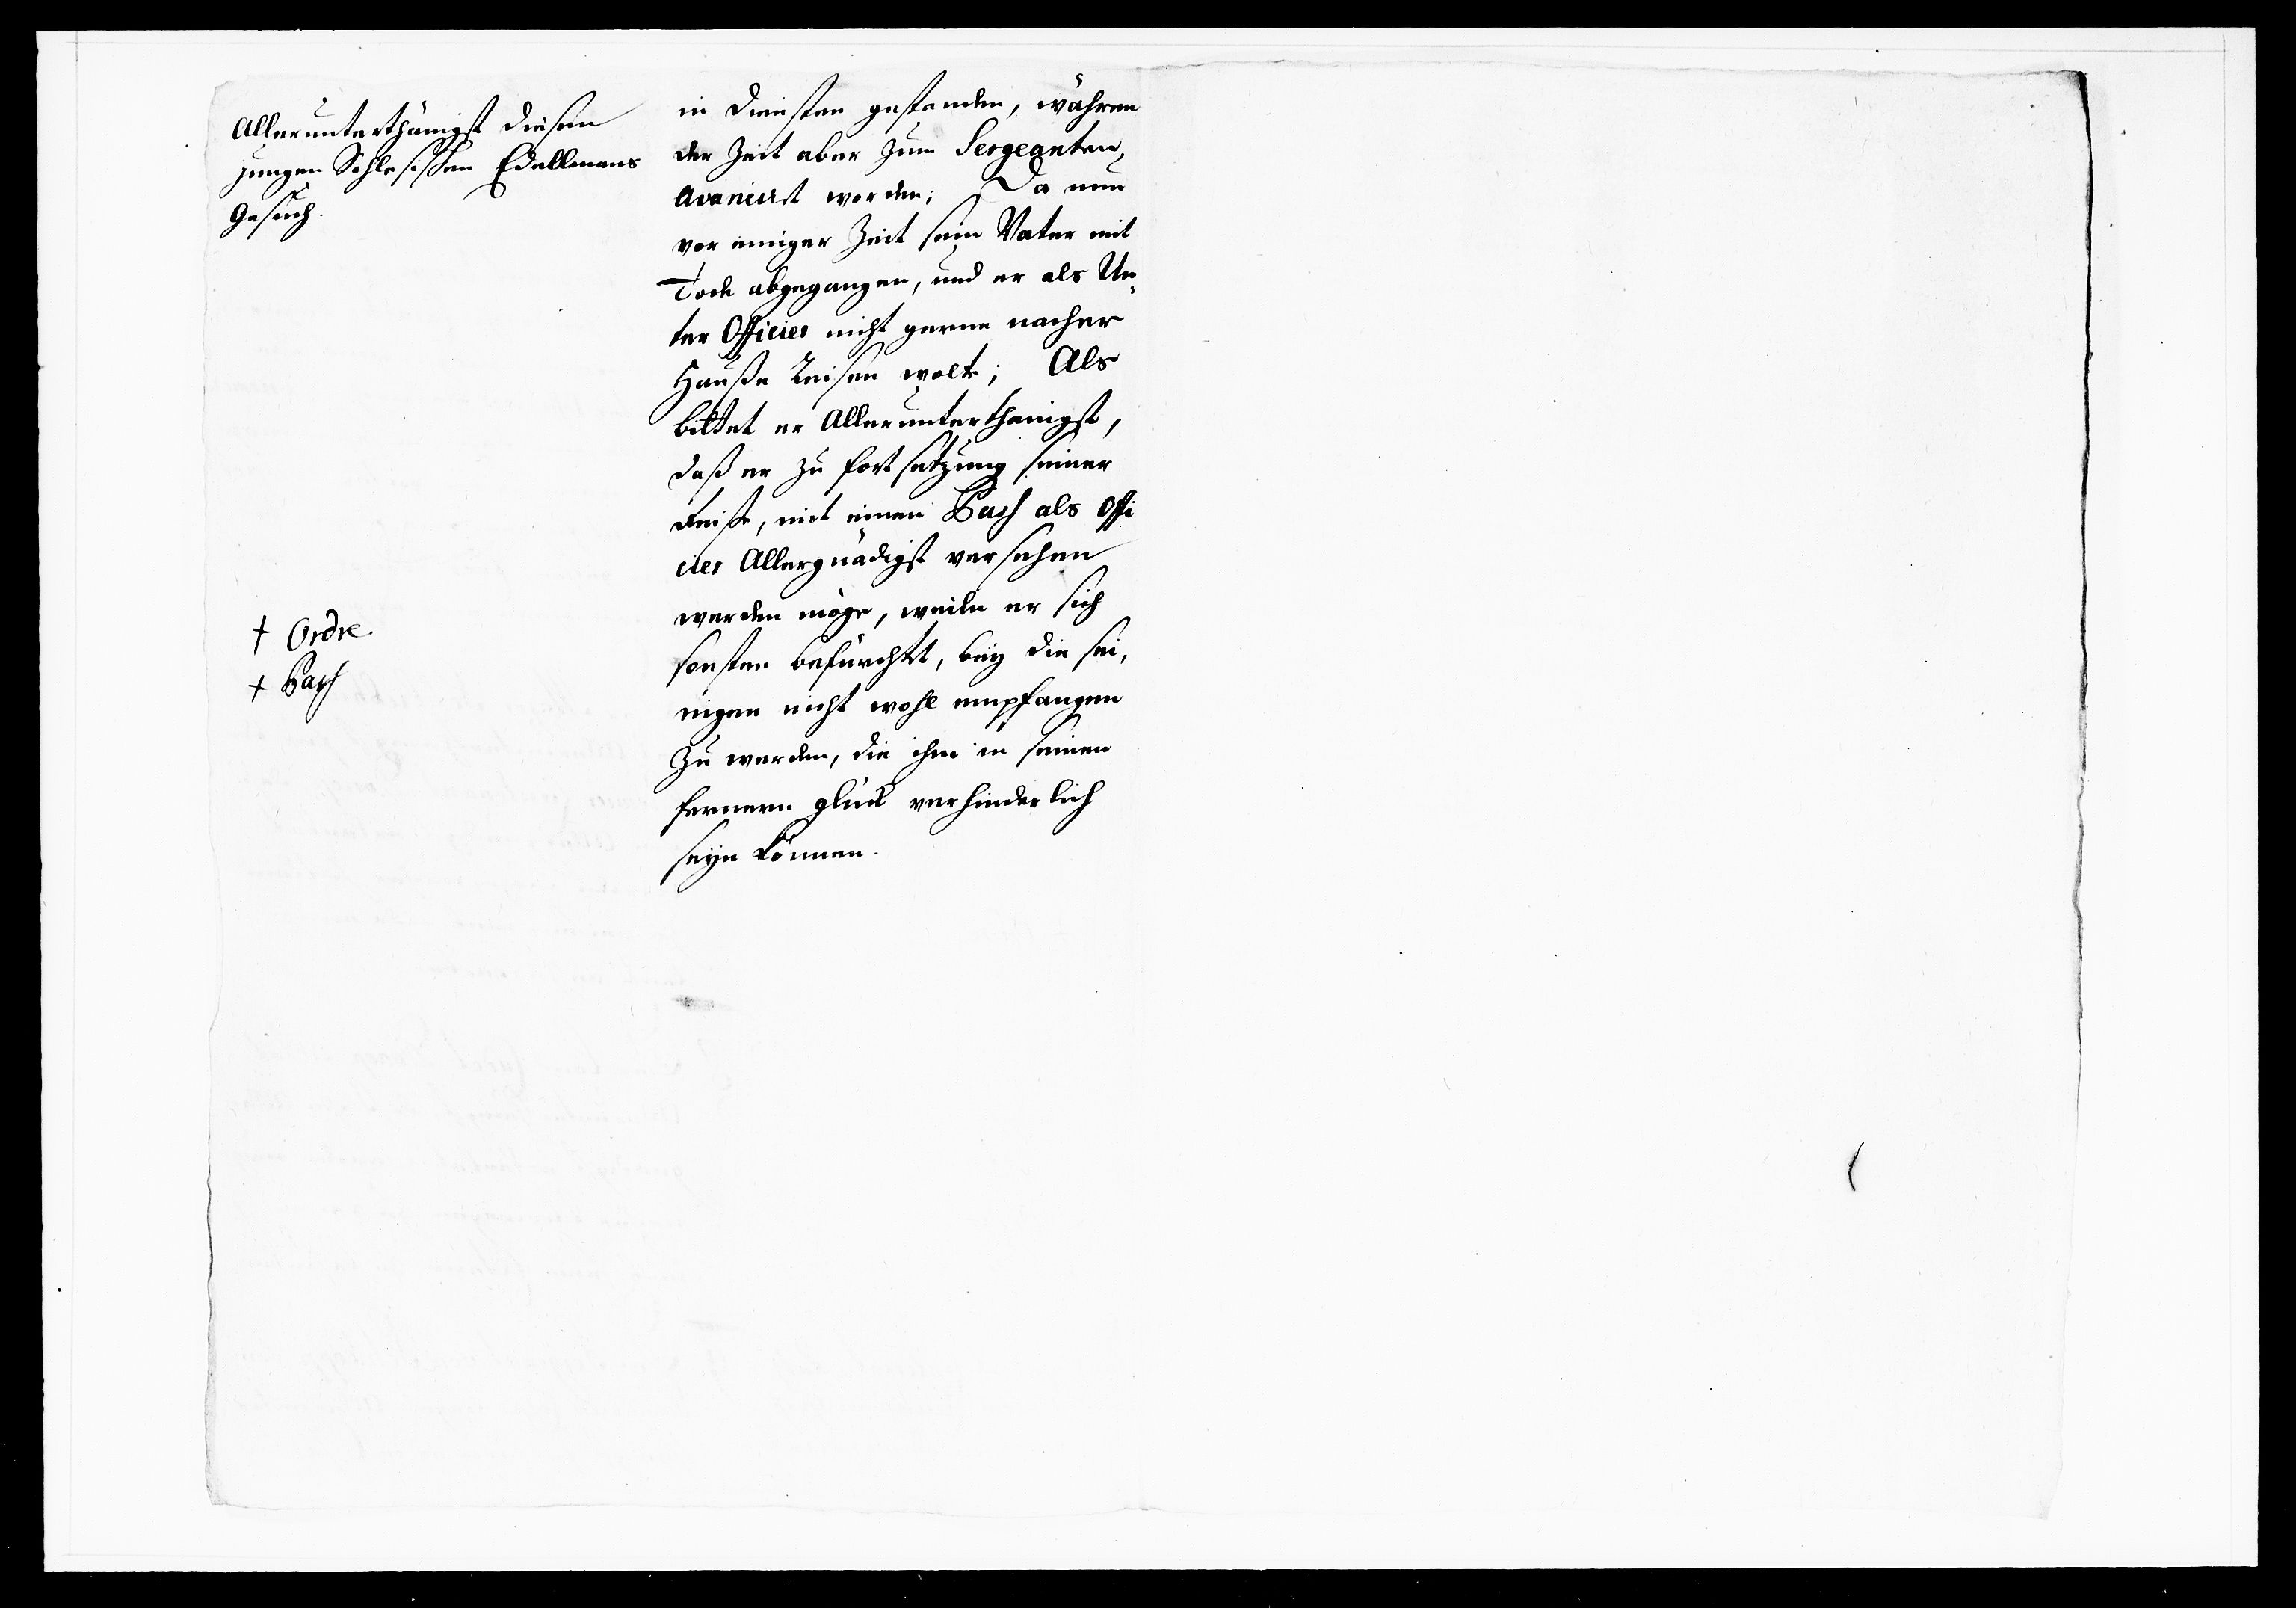 Allerunterthänigst diesen
jungen Schlesischen Edellmans
Gesuch.
† Ordre
† Pass
in diensten gestanden, währen
der Zeit aber zum Sergeanten,
avanciret worden; Da nun
vor einiger Zeit sein Vater mit
Tode abgegangen, und er als Un-
ter Officier nicht gerne nacher
Hausse Reisen wolte; Als
bittet er Allerunterthänigst,
daß er zu fortsetzung seiner
Reise, mit einen Pass als Offi
cier Allergnädigst versehen
werden möge, weiln er sich
sonsten befürchtet, bey die sei,
nigen nicht wohl empfangen
zu werden, die ihm in seinen
fernern glück verhinderlich
seyn können.